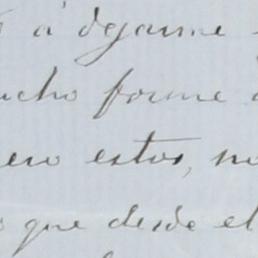 á dejarme
ucho forme
ero estos, no
que desde el